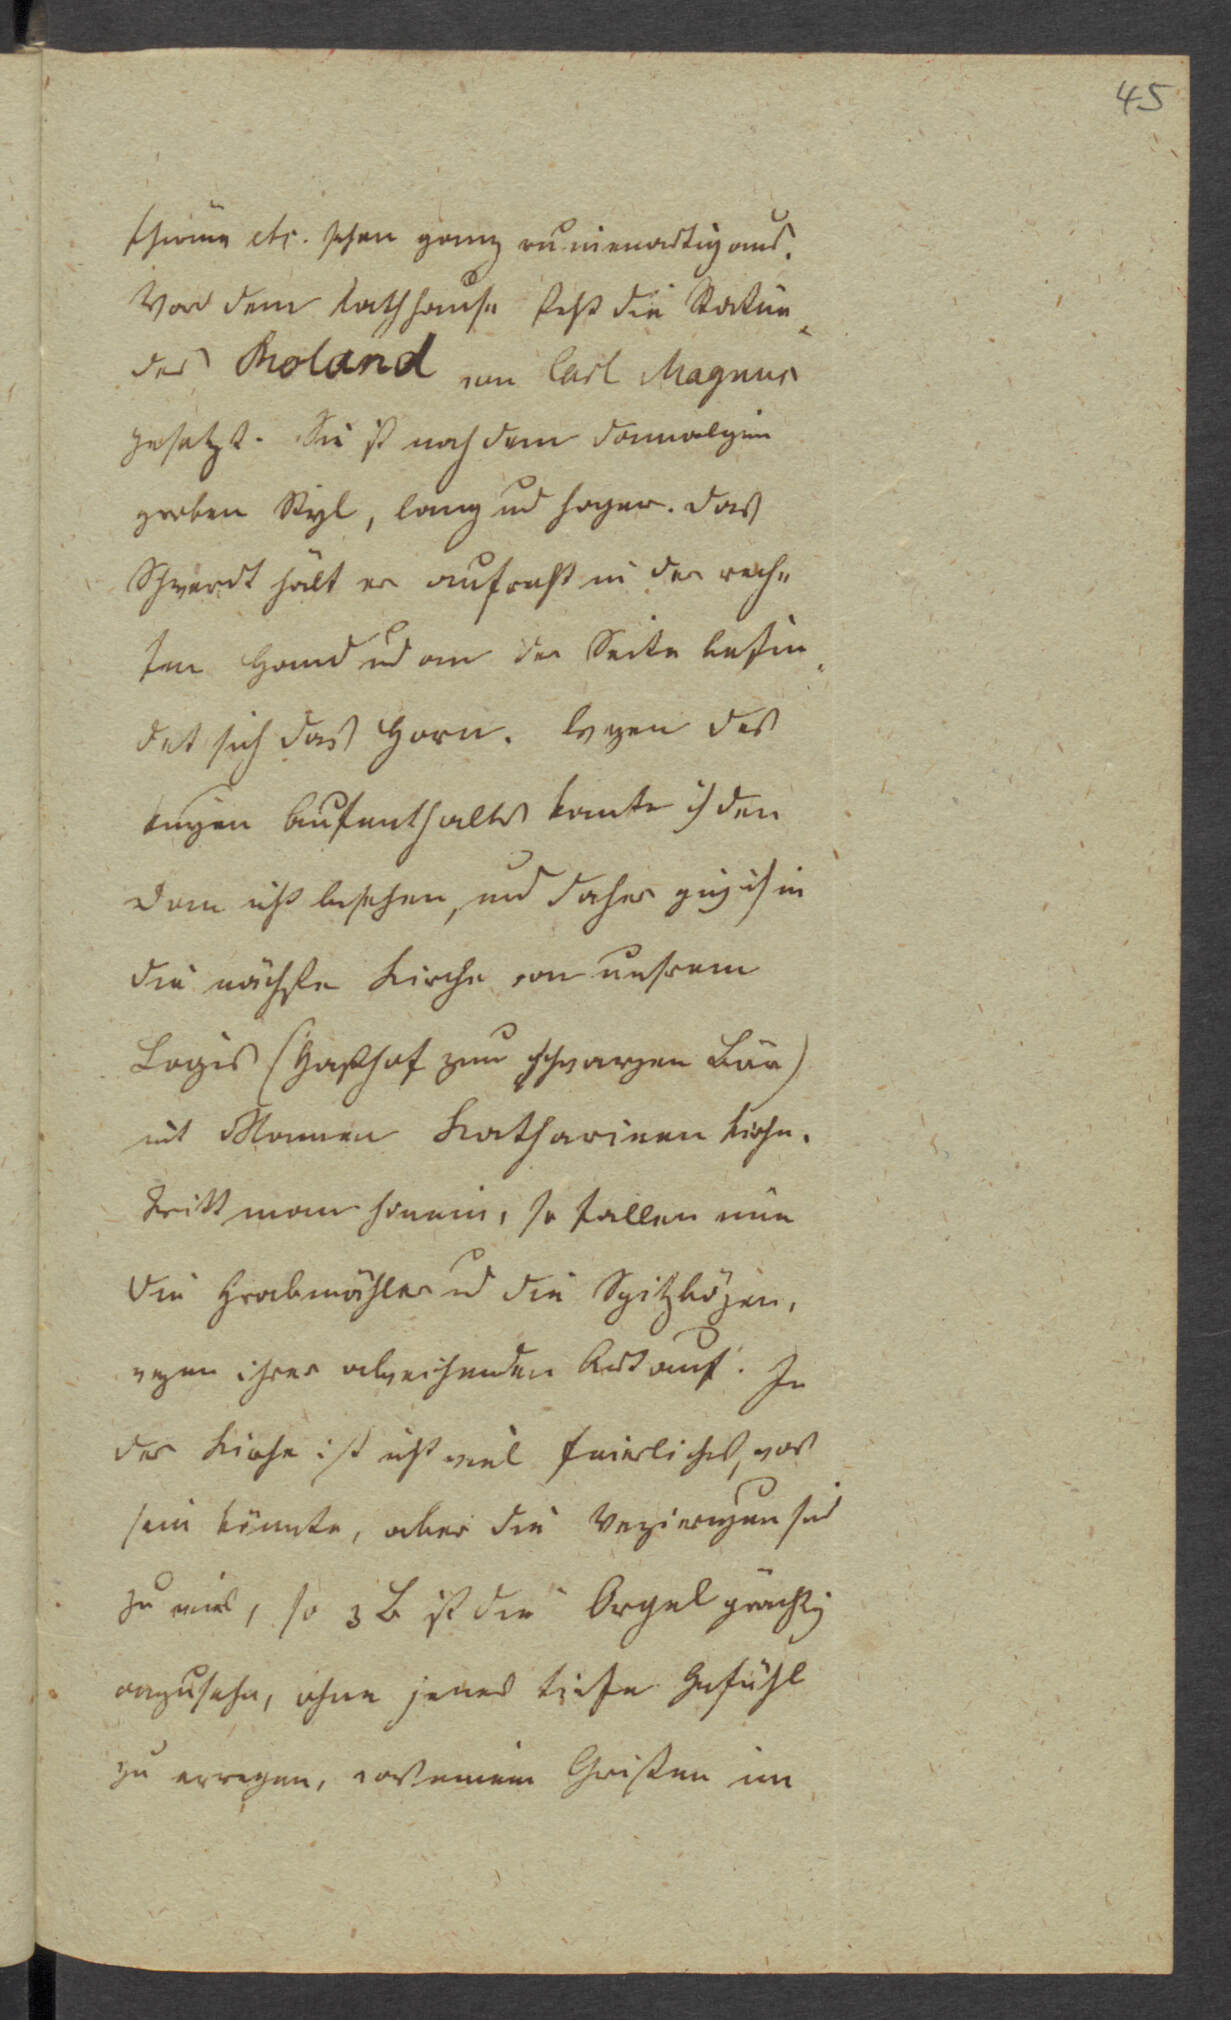 45
thürme etc. sehen ganz ruinenartig aus.
Vor dem Rathhause steht die Statüe
des Roland von Carl Magnus
gesetzt. Sie ist nach dem damaligen
groben Styl, lang und hager. Das
Schwerdt hält er aufrecht in der rech„
ten Hand und an der Seite befin„
det sich das Horn. Wegen des
kurzen Aufenthaltes konte ich den
Dom nicht besehen, und daher ging ich in
die nächste Kirche von unsrem
Logis (Gasthof zum schwarzen Bär)
mit Namen Katharinen Kirche.
Tritt man hinein, so fallen einem
die Grabmähler und die Spitzbögen,
wegen ihrer abweichenden Art auf. In
der Kirche ist nicht viel feierliches, was
sein könnte, aber die Verzierungen sind
zu viel, so z B ist die Orgel prächtig
anzusehn, ohne jenes tiefe Gefühl
zu erregen, was einem Christen im